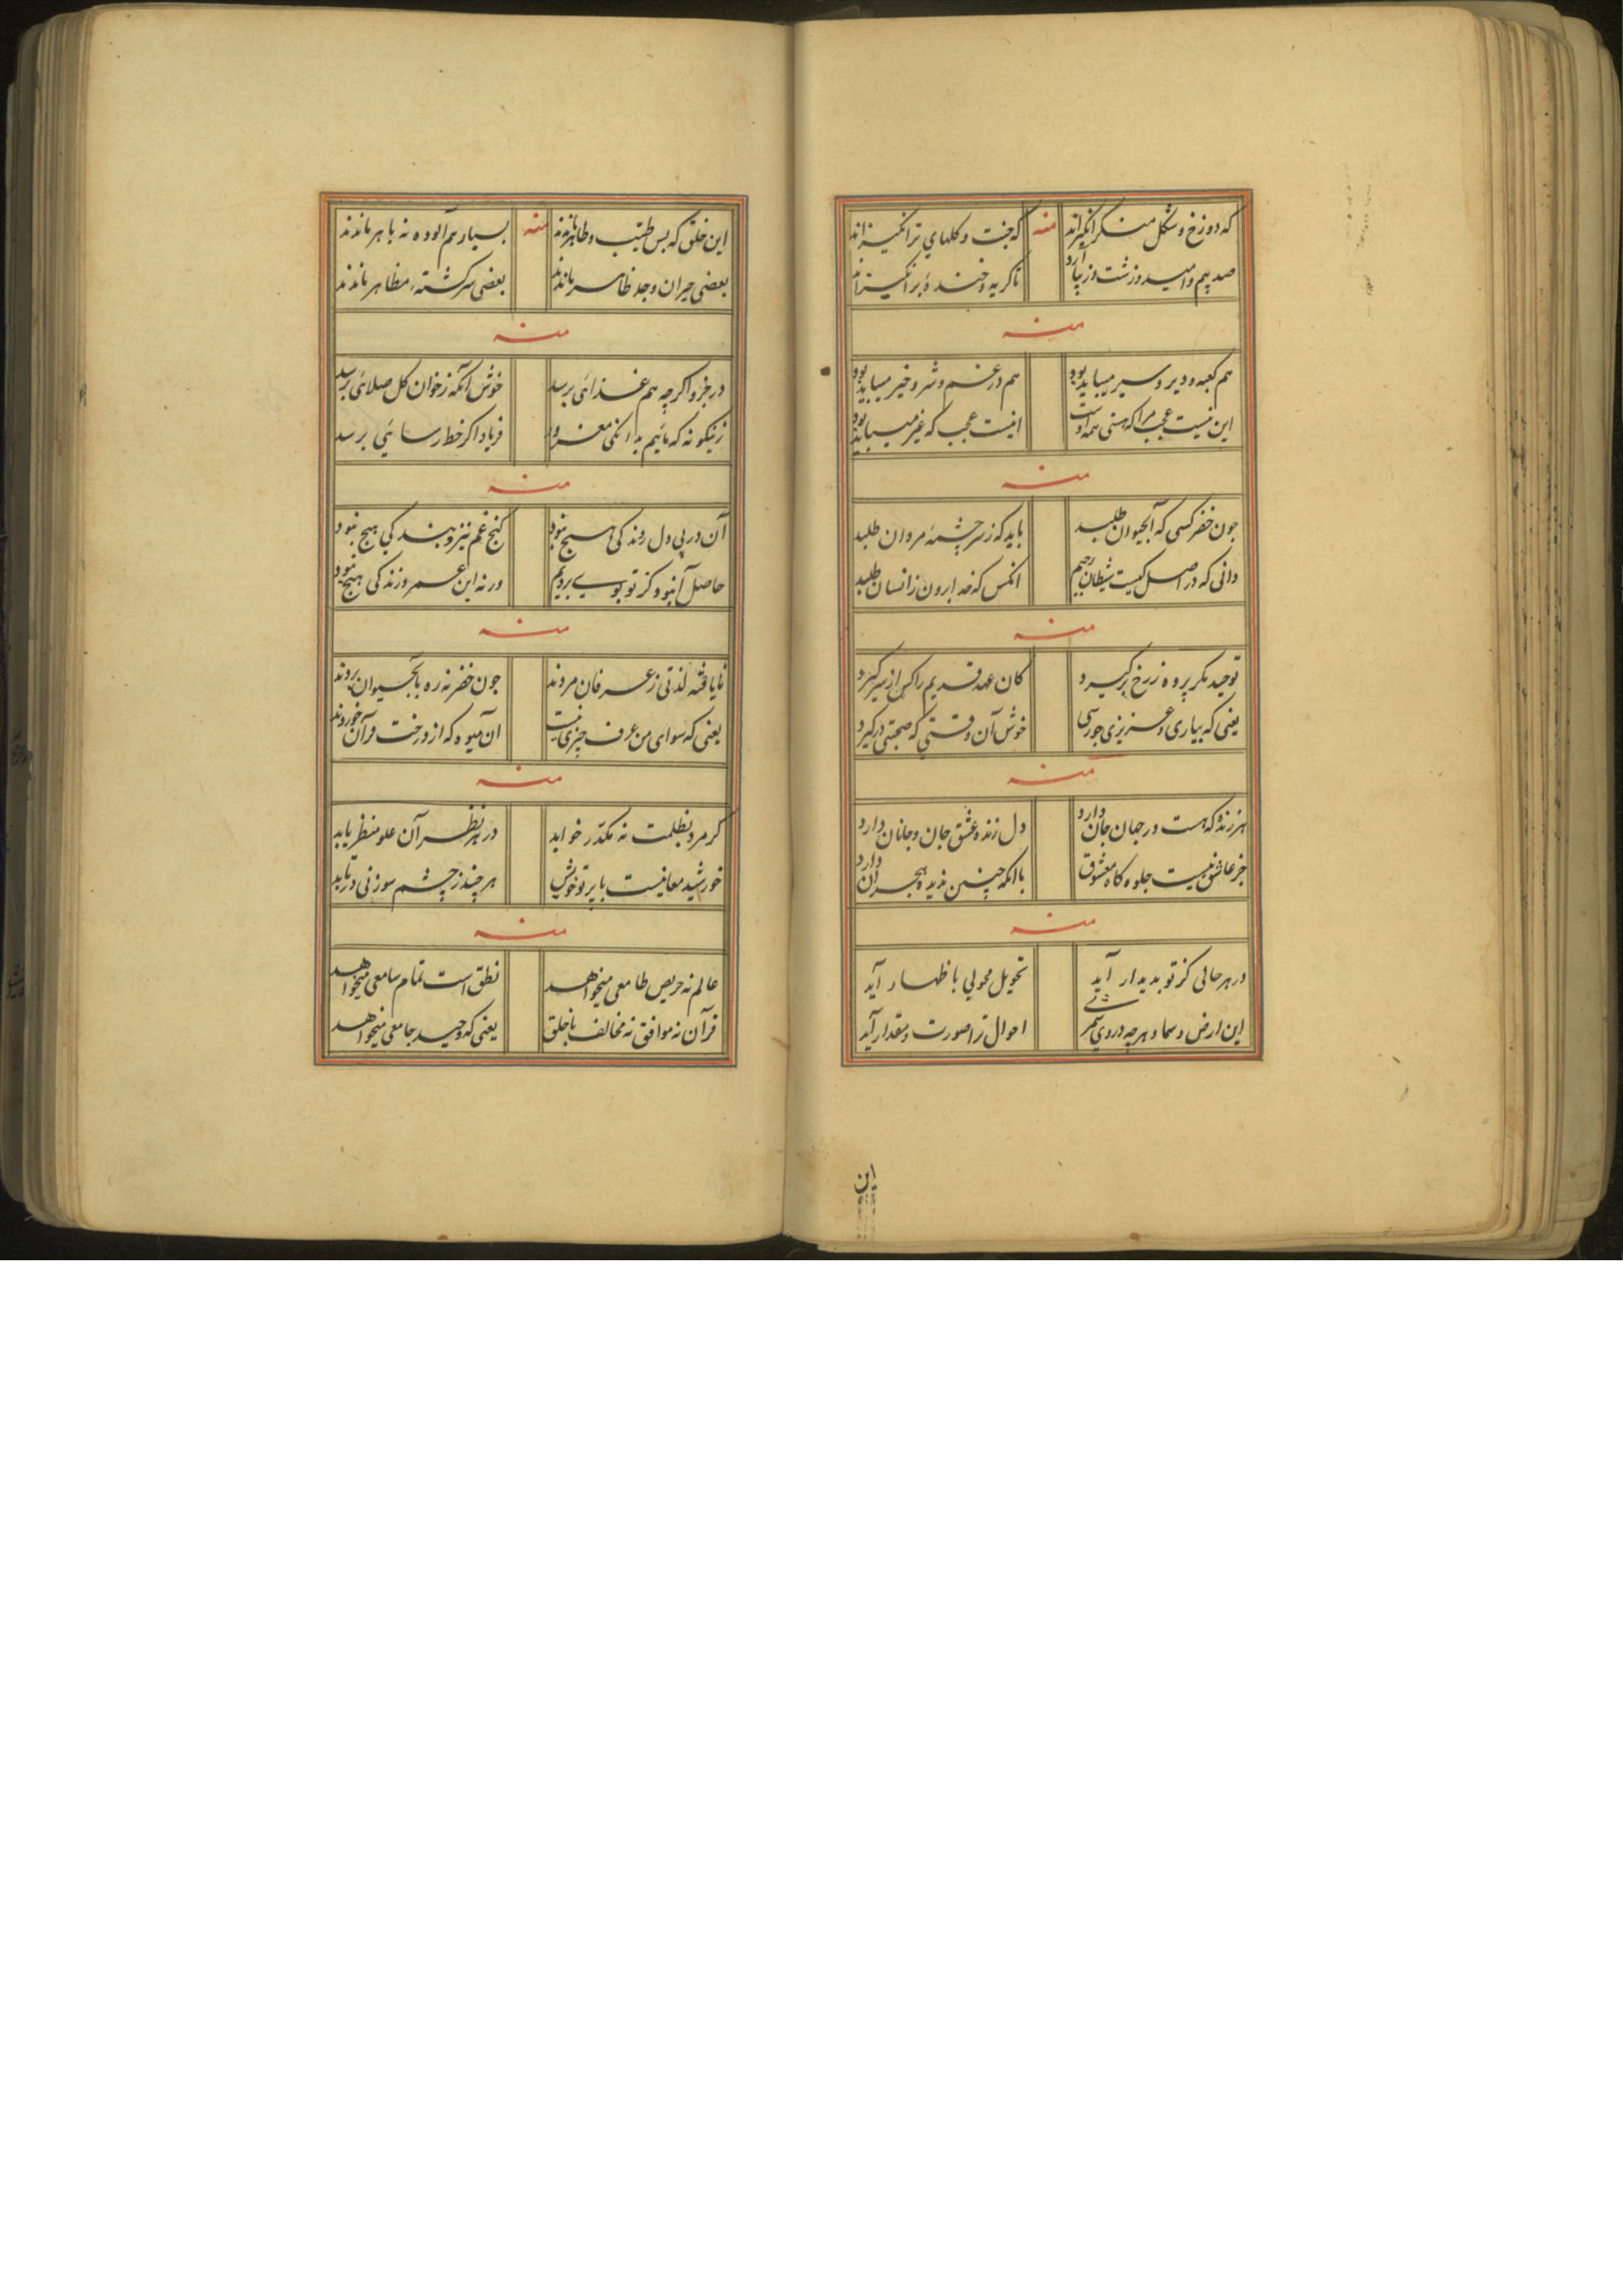 که دوزخ و شکل منکر انگیزاند منه که جنت و گلهای تر انگیزاند
صد بیم و امید و زشت و زیبا آرد تا گریه و خندهٔ بر انگیزاند
منه
هم کعبه و دیر و سیر میباید بود هم در غم و شر و خیر میباید بود
این نیست عجب مرا که هستی همه اوست اینست عجب که غیر میباید بود
منه
چون خضر کسی که آبحیوان طلبد باید که ز سرچشمهٔ مردان طلبد
دانی که در اصل کیست شیطان رجیم انکس که خدا برون ز انسان طلبد
منه
توحید مگر پرده ز رخ برگیرد کان عهد قدیم را کس از سر گیرد
یعنی که بیاری و عزیزی چو رسی خوش آن وقتی که صحبتی درگیرد
منه
هر زنده که هست در جهان جان دارد دل زنده عشق جان و جانان دارد
جز عاشق نیست جلوه گاه معشوق با آنکه چنین بدیده هجران دارد
منه
در هر حالی کز تو بدیدار آید تحویل محولی باظهار آید
این ارض و سما و هرچه در وی شمری احوال ترا صورت و مقدار آید
این
این خلق که بس طیّب و طاهر ماندند منه بسیار هم آلوده نه باهر ماندند
بعضی حیران وجد ظاهر ماندند بعضی سرگشتهٔ مظاهر ماندند
منه
در جزو اگرچه هم غذائی برسد خوش آنکه ز خوان کل صلائی برسد
زینگونه که مائیم به اندکی مغرور فریاد اگر خط رسائی برسد
منه
آن در پی دل دوندگی هیچ نبود گنج غم نیز و بندگی هیچ نبود
حاصل آنبود کز تو بویی بردیم ورنه این عمر و زندگی هیچ نبود
منه
نایافته لذتی ز عرفان مردند چون خضر نه ره بآبحیوان بردند
یعنی که سوای من عرف چیزی نیست آن میوه که از درخت قرآن خوردند
منه
گر مرد بظلمت نه مکدر خوابد در هر نظر آن علو منظر یابد
خورشید معانیست با پرتو خویش هرچند ز چشم سوزنی در تابد
منه
عالم نه حریص طامعی میخواهد نطق است تمام سامعی میخواهد
قرآن نه موافق نه مخالف با خلق یعنی که وحید جامعی میخواهد